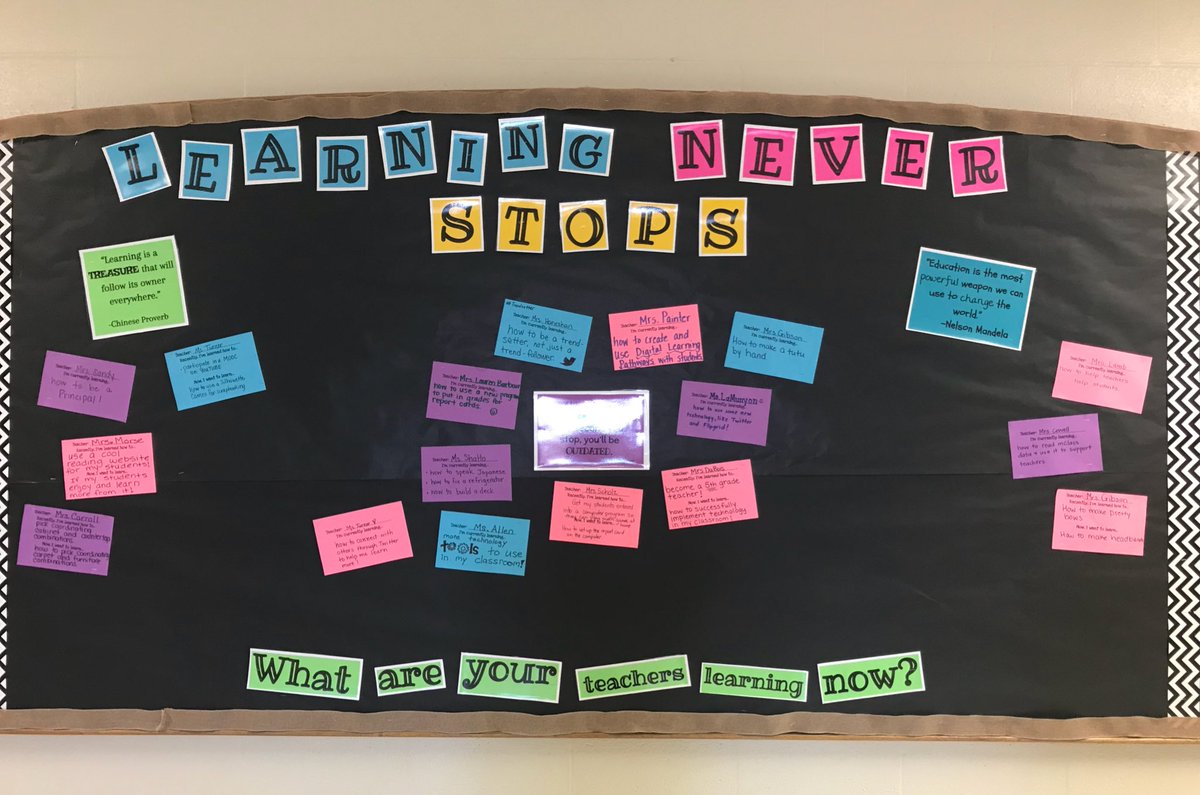 LEARNING NEVER
STOPS
"Learning is a
TREASURE that will
follow its owner
everywhere."
-Chinese Proverb
"Education is the most
powerful weapon we can
use to change the
world."
-Nelson Mandela
Teacher: Mrs. Sandy
I'm currently learning...
how to be a
Principal!
Teacher: Ms. Turner
Recently, I've learned how to...
participate in a MOOC
on YouTube
Now I want to learn...
how to use a Silhouette
Cameo for scrapbooking
Teacher: Mrs. Marse
Recently, I've learned how to...
use a cool
reading website
for my students!
Now I want to learn...
If my students
enjoy and learn
more from it!
Teacher: Mrs. Carroll
Recently, I've learned how to...
pick coordinating
cabinets and countertop
combinations.
Now I want to learn...
how to pick coordinating
carpet and furniture
combinations.
Teacher: Ms. Hanrahan
I'm currently learning...
how to be a trend-
setter, not just a
trend-follower.
Teacher: Mrs. Painter
I'm currently learning...
how to create and
use Digital Learning
Pathways with students
Teacher: Mrs. Gibson
I'm currently learning...
How to make a tutu
by hand
Teacher: Mrs. Lauren Barbour
I'm currently learning...
how to use a new program
to put in grades for
report cards.
stop, you'll be
OUTDATED.
Teacher: Ms. LaMunyon
I'm currently learning...
how to use some new
technology, like Twitter
and Flipgrid!
Teacher: Ms. Shatto
I'm currently learning...
how to speak Japanese
how to fix a refrigerator
how to build a deck
Teacher: Ms. Turner
I'm currently learning...
how to connect with
others through Twitter
to help me learn
more!
Teacher: Ms. Allen
I'm currently learning...
more technology
tools to use
in my classroom!
Teacher: Mrs. Scholz
Recently, I've learned how to...
Get my students entered
into a computer program so
Now I want to learn...
How to set up the report card
on the computer
Teacher: Mrs. DuBois
Recently, I've learned how to...
become a 5th grade
teacher!
Now I want to learn...
how to successfully
implement technology
in my classroom!
Teacher: Mrs. Lamb
I'm currently learning...
how to help teachers
help students
Teacher: Mrs. Covell
I'm currently learning...
how to read mclass
data & use it to support
teachers
Teacher: Mrs. Gibson
Recently, I've learned how to...
How to make pretty
bows
Now I want to learn...
How to make headbands
What are your teachers learning now?